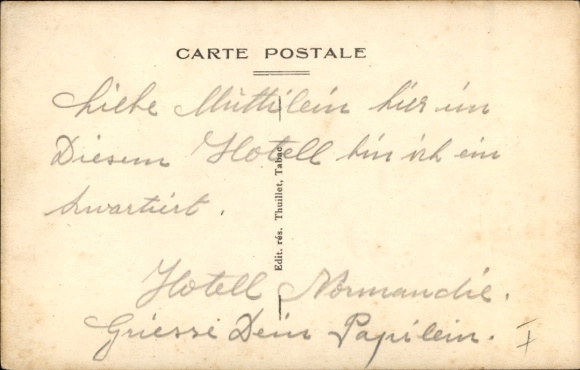 CARTE POSTALE
Liebe Müttilein hier im
Diesem Hotell bin ich ein
kwartiert.
Hotell Normandie.
Griesse Dein Papilein. I
Edit. rés. Thuillet, Tabac